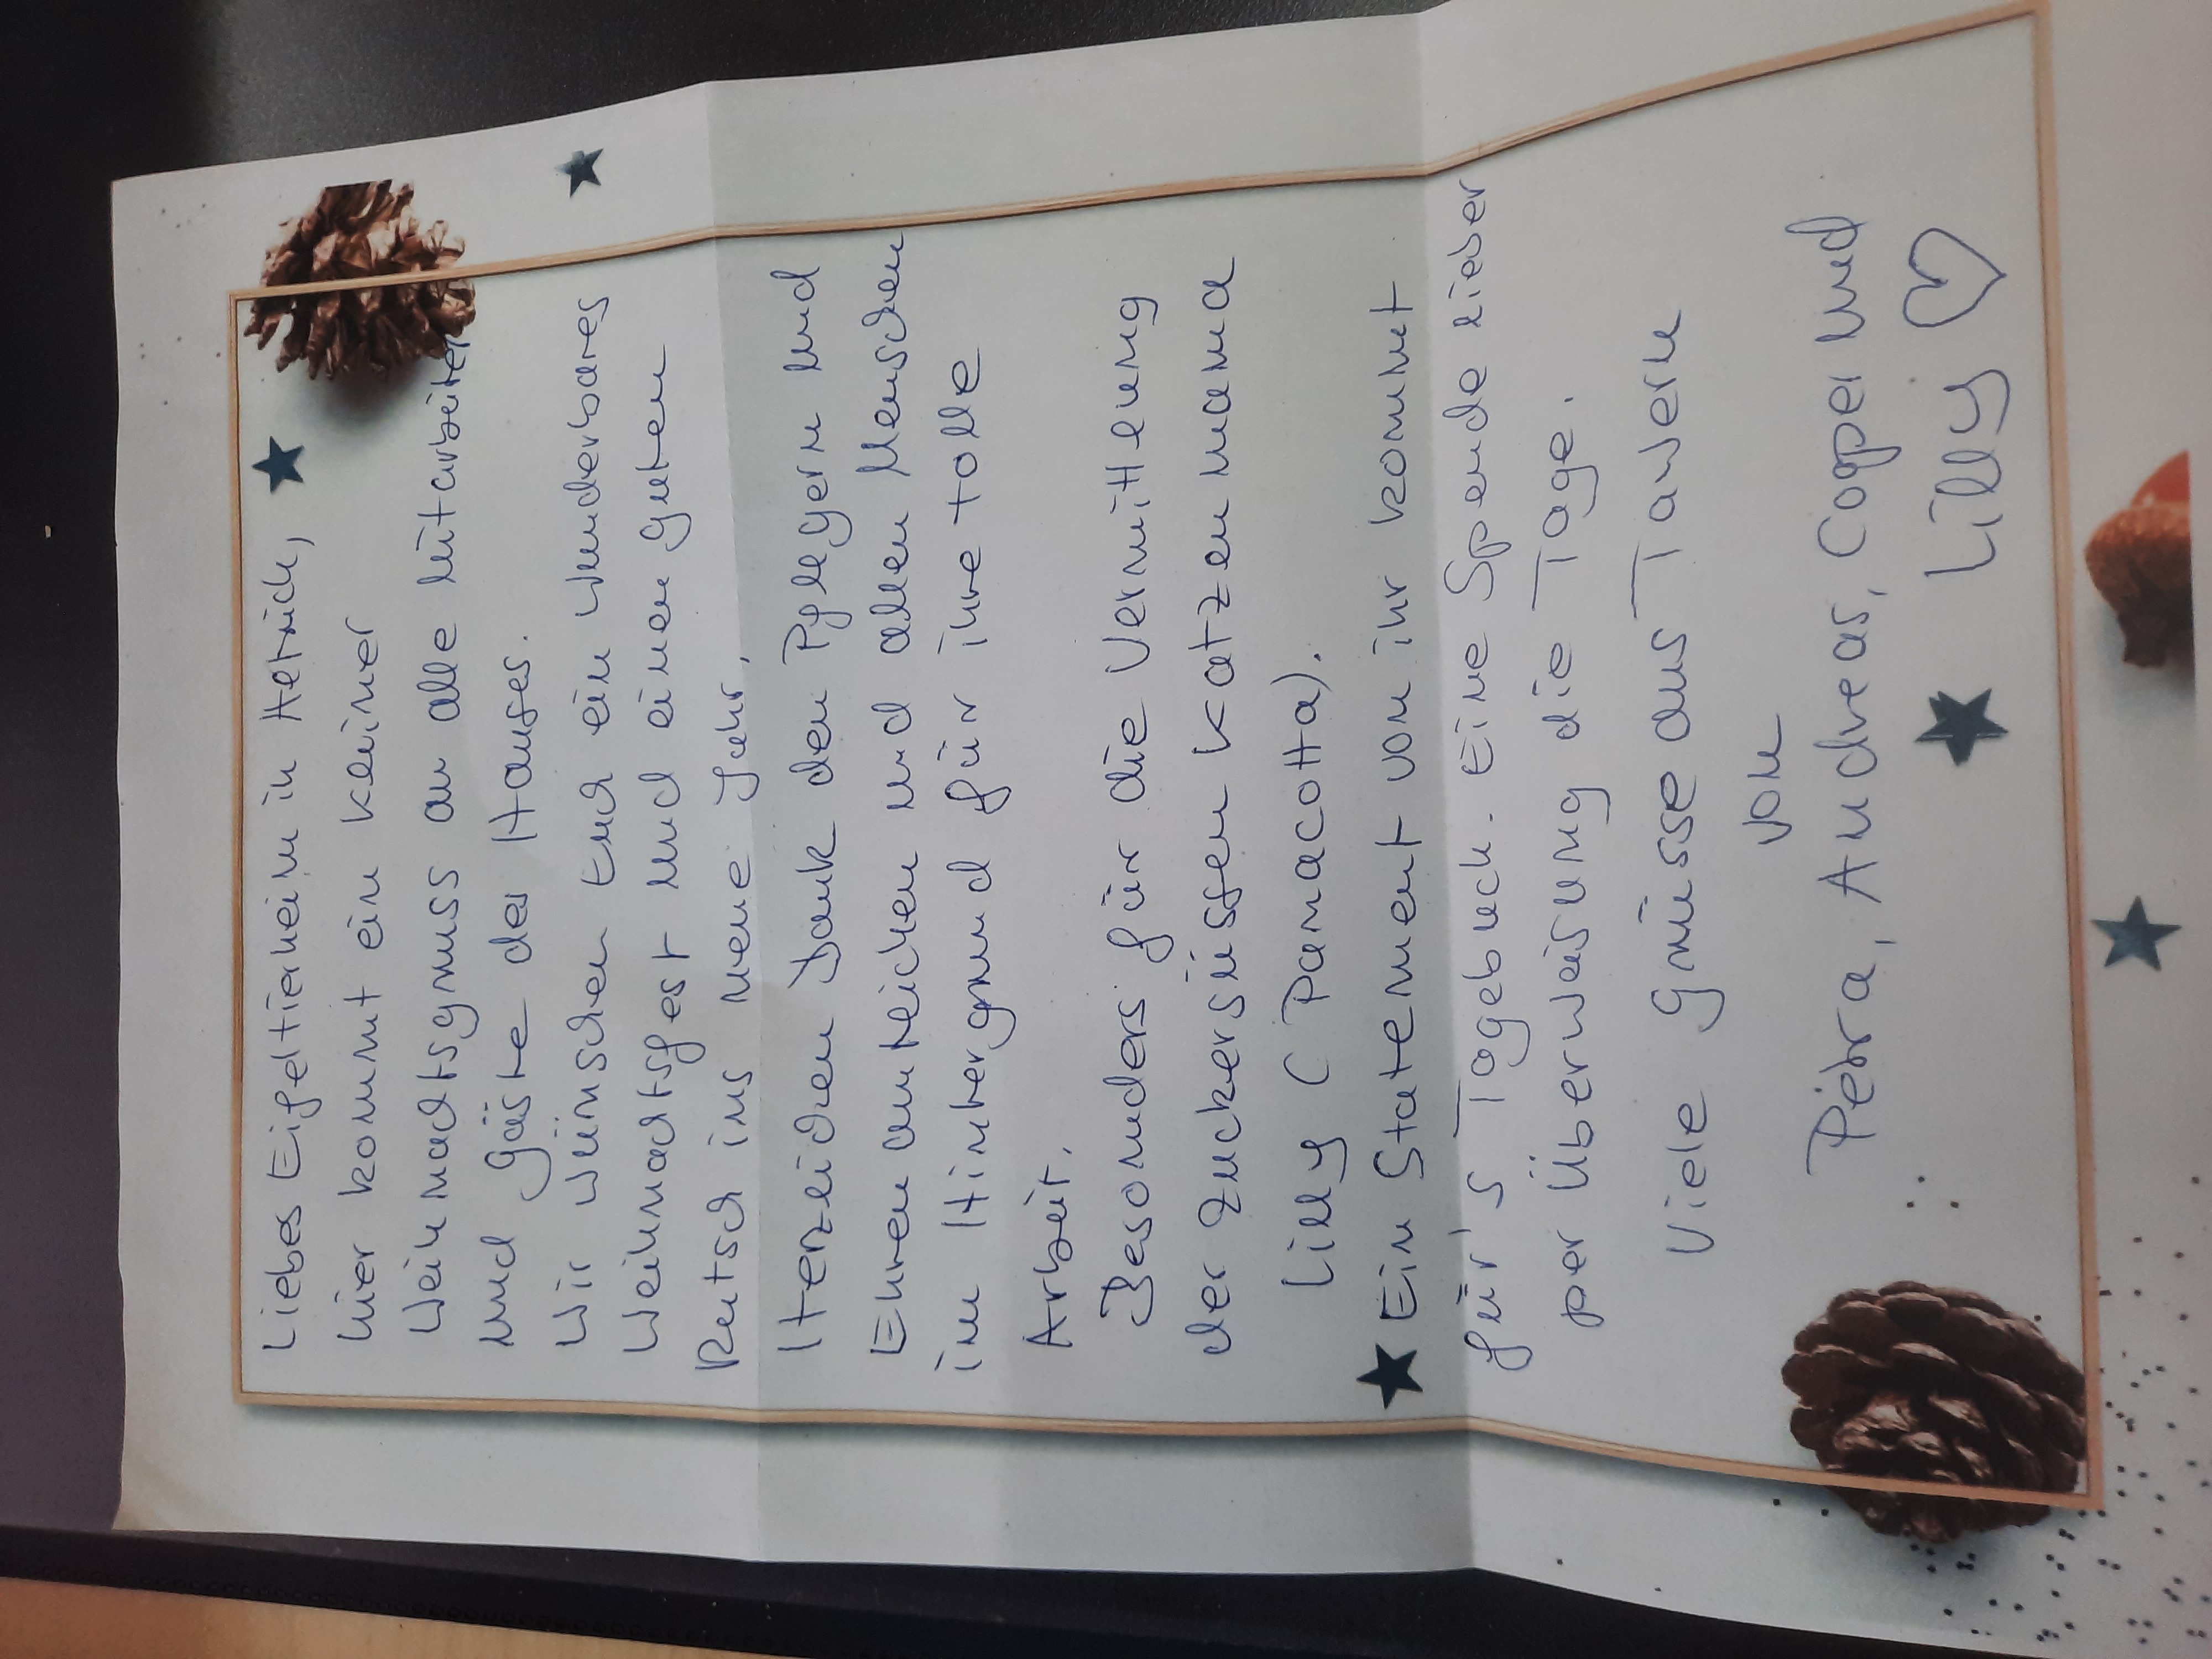 Liebes Eifeltierheim in Aetrich,
hier kommt ein kleiner
Weihnachtsgruss an alle Mitarbeiter
und Gäste des Hauses.
Wir wünschen Euch ein wunderbares
Weihnachtsfest und einen guten
Rutsch ins neue Jahr.
Herzlichen Dank den Pflegern und
Ehrenamtlichen und allen Menschen
im Hintergrund für ihre tolle
Arbeit.
Besonders für die Vermittlung
der zuckersüssen Katzenmama
Lilly (Panacotta).
Ein Statement von ihr kommt
für's Tagebuch. Eine Spende lieber
per Überweisung die Tage.
Viele Grüsse aus Tawern
von
Petra, Andreas, Copper und
Lilly ♡